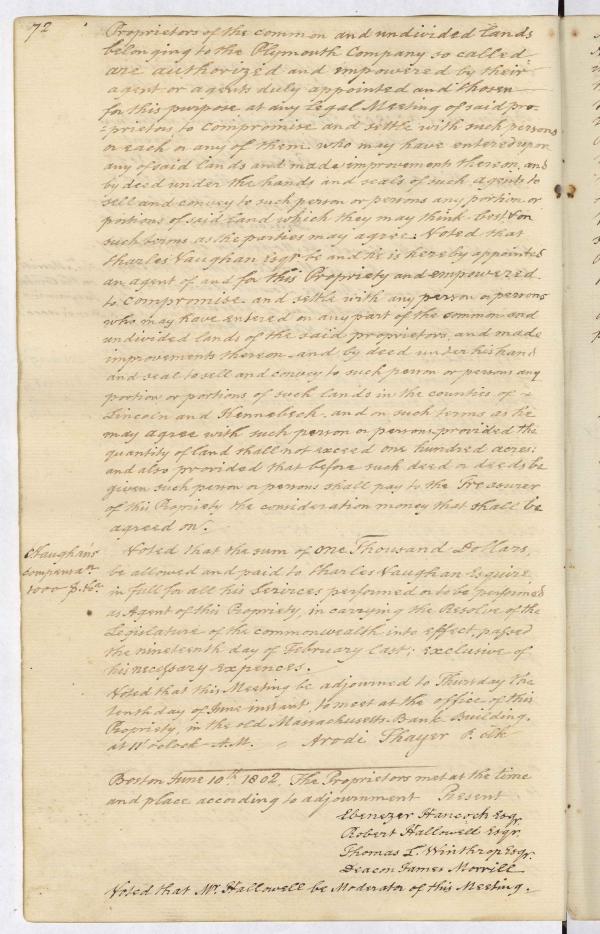 72
Proprietors of the common and undivided lands
belonging to the Plymouth Company so called
are authorized and impowered by their
agent or agents duly appointed and chosen
for this purpose at any legal Meeting of said pro-
=prietors to compromise and settle with such persons
or each or any of them who may have entered upon
any of said lands and made improvements thereon, and
by deed under the hands and seals of such agents to
sell and convey to such person or persons any portion or
portions of said land which they may think best & on
such terms as the parties may agree: Voted that
Charles Vaughan Esqr. be and he is hereby appointed
an agent of and for this Propriety and empowered
to compromise and settle with any person or persons
who may have entered on any part of the common and
undivided lands of the said proprietors, and made
improvements thereon and by deed under his hand
and seal to sell and convey to such person or persons any
portion or portions of such lands in the counties of
Lincoln and Kennebeck and on such terms as he
may agree with such person or persons provided the
quantity of land shall not exceed one hundred acres;
and also provided that before such deed or deeds be
given such person or persons shall pay to the Treasurer
of this Propriety the consideration money that shall be
agreed on.
C. Vaughan's
compensa.n
1000
Voted that the sum of One Thousand Dollars,
be allowed and paid to Charles Vaughan Esquire
in full for all his Services performed or to be performed
as Agent of this Propriety, in carrying the Resolve of the
Legislature of the commonwealth into effect, passed
the nineteenth day of February last; exclusive of
his necessary expences.
Voted that this Meeting be adjourned to Thursday the
tenth day of June instant, to meet at the office of this
Propriety, in the old Massachusetts Bank Building,
at 11 o'clock A.M. Arodi Thayer P. clk
Boston June 10th 1802. The Proprietors met at the time
and place according to adjournment Present
Ebenezer Hancock Esqr.
Robert Hallowell Esqr.
Thomas L. Winthrop Esqr.
Deacon James Morrill
Voted that Mr. Hallowell be Moderator of this Meeting.